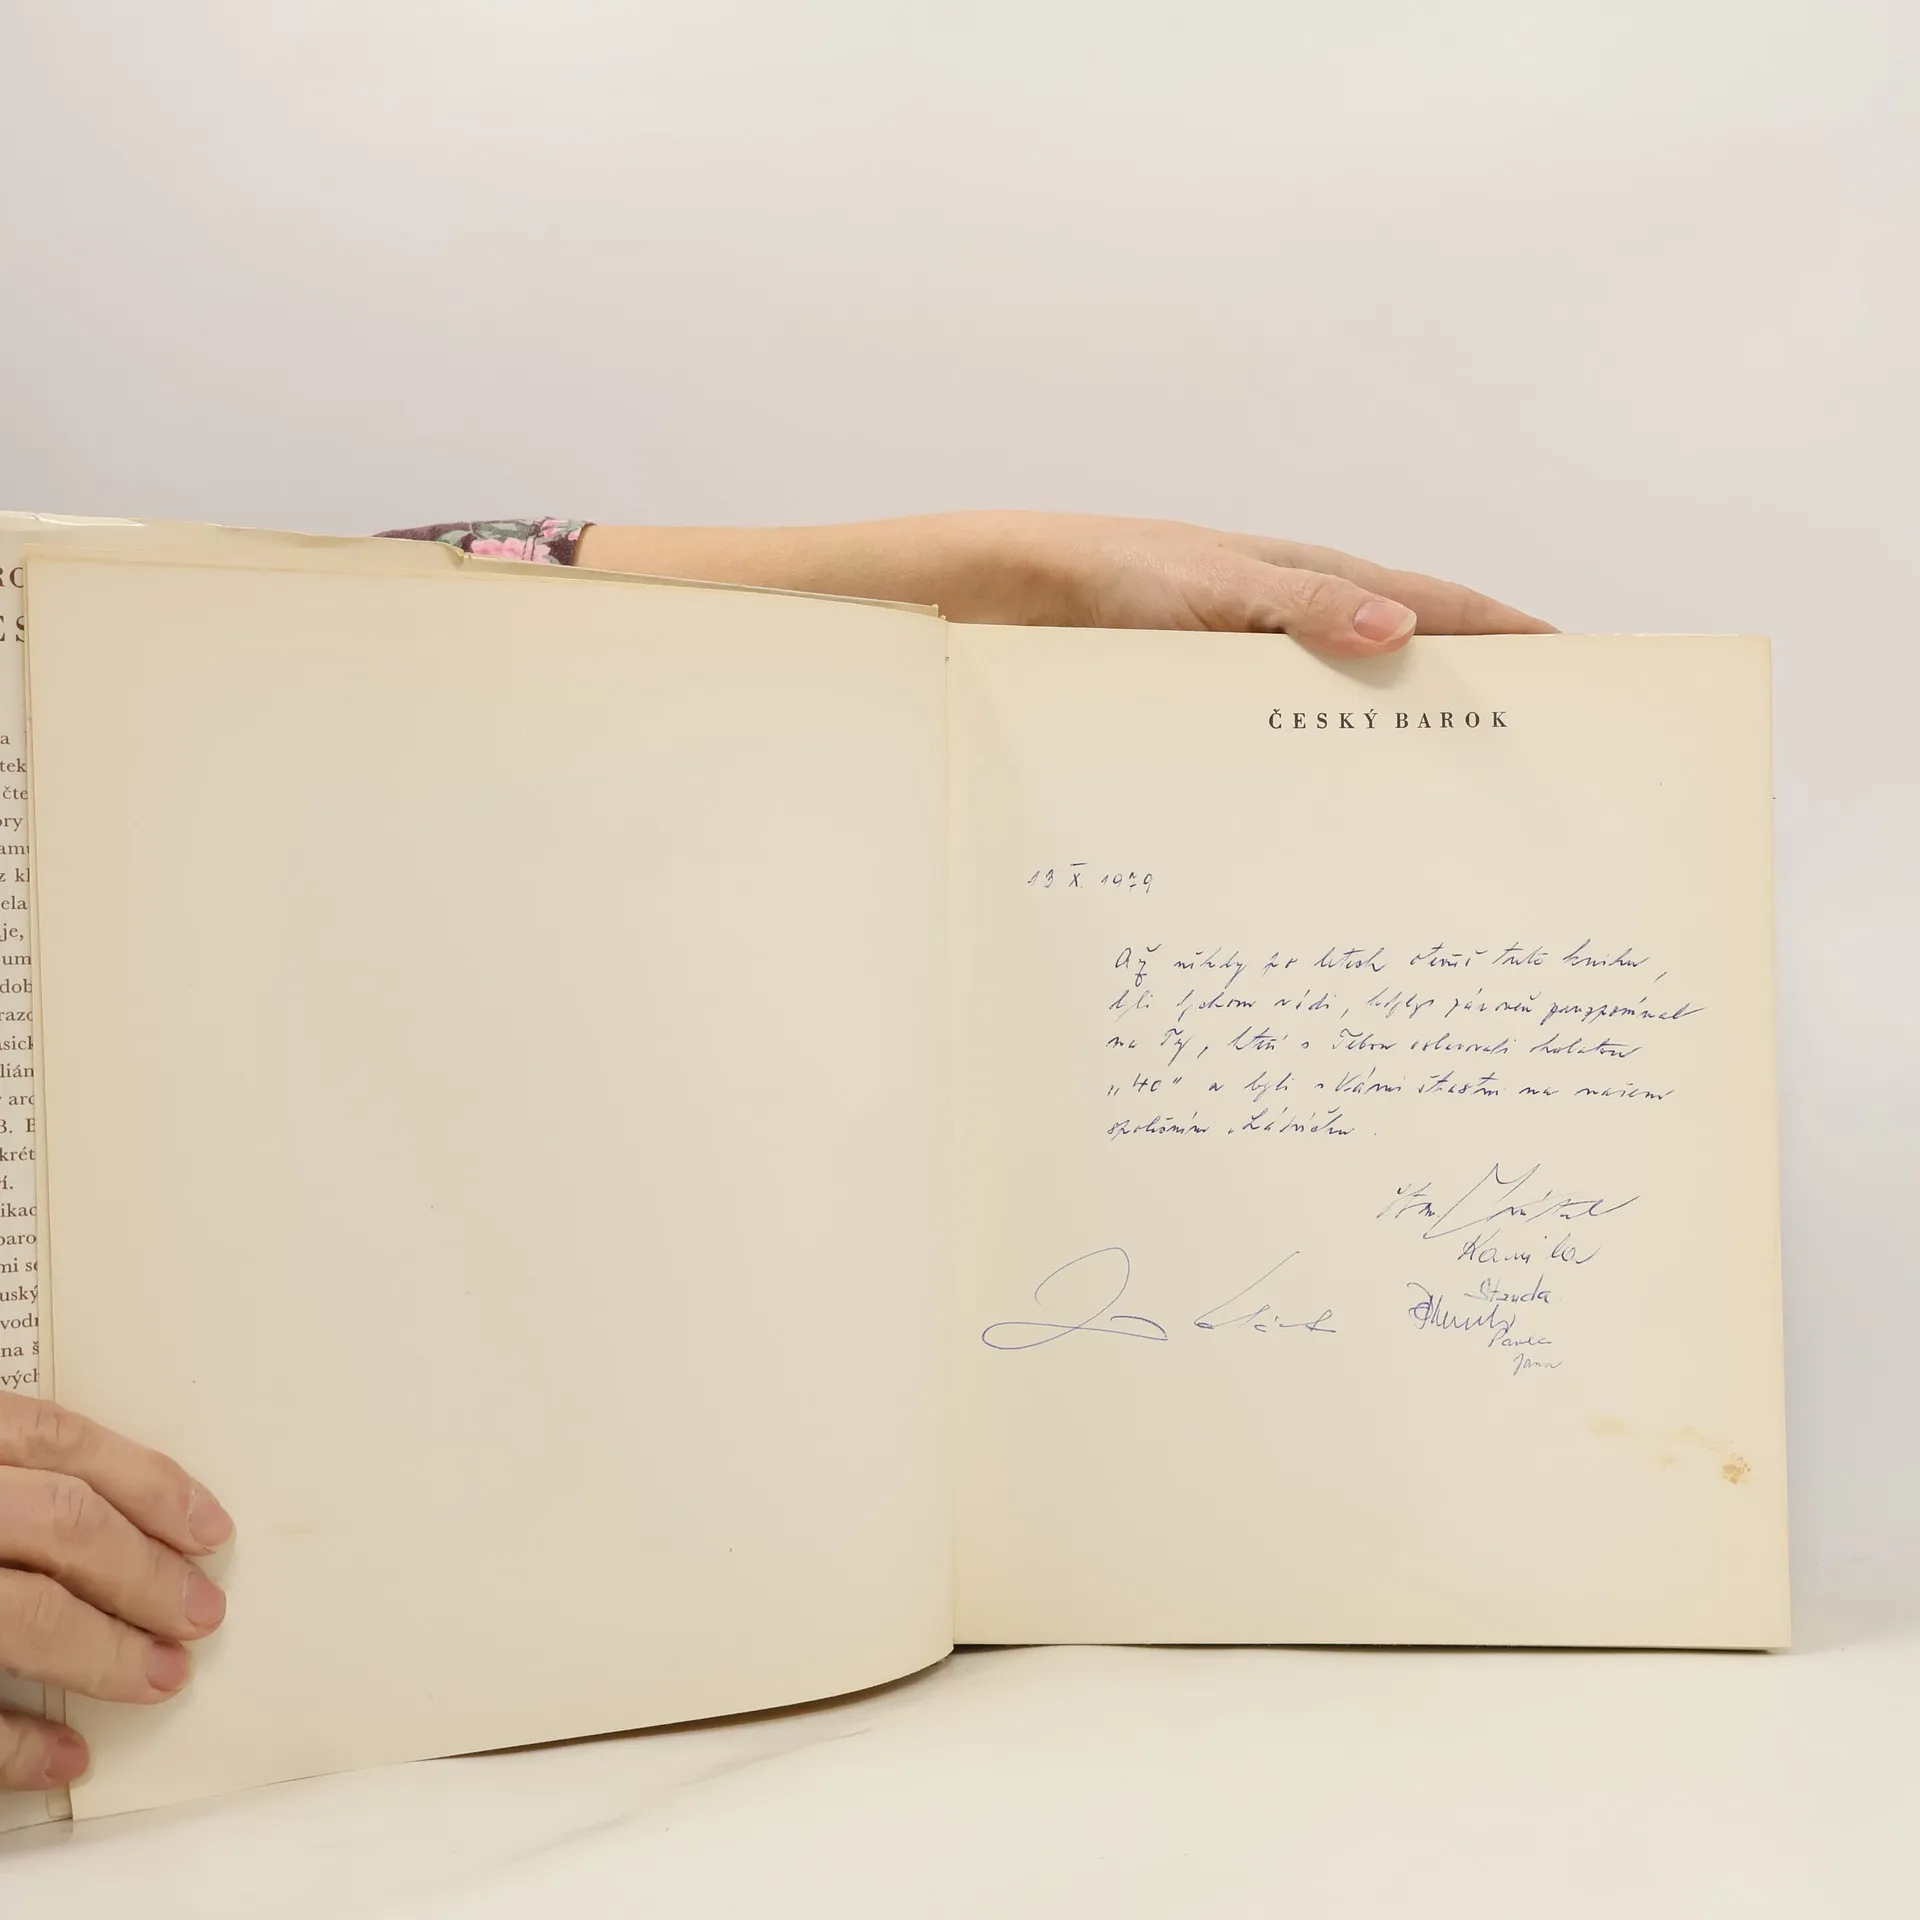 RO
ES
a
tek
čte
ory
amu
z kl
ela
je,
um
dob
razo
asick
lián
arc
B. B
krét
í.
ikac
baro
mi se
uský
vodn
na š
vých
ČESKÝ BAROK
13 X. 1979
Až někdy po letech otevřeš tuto knihu,
byli bychom rádi, kdybys zároveň zavzpomínal
na Ty, kteří s Tebou oslavovali kulatou
„40“ a byli s Vámi šťastni na našem
společném
Kamila
Standa
Pavla
Jana